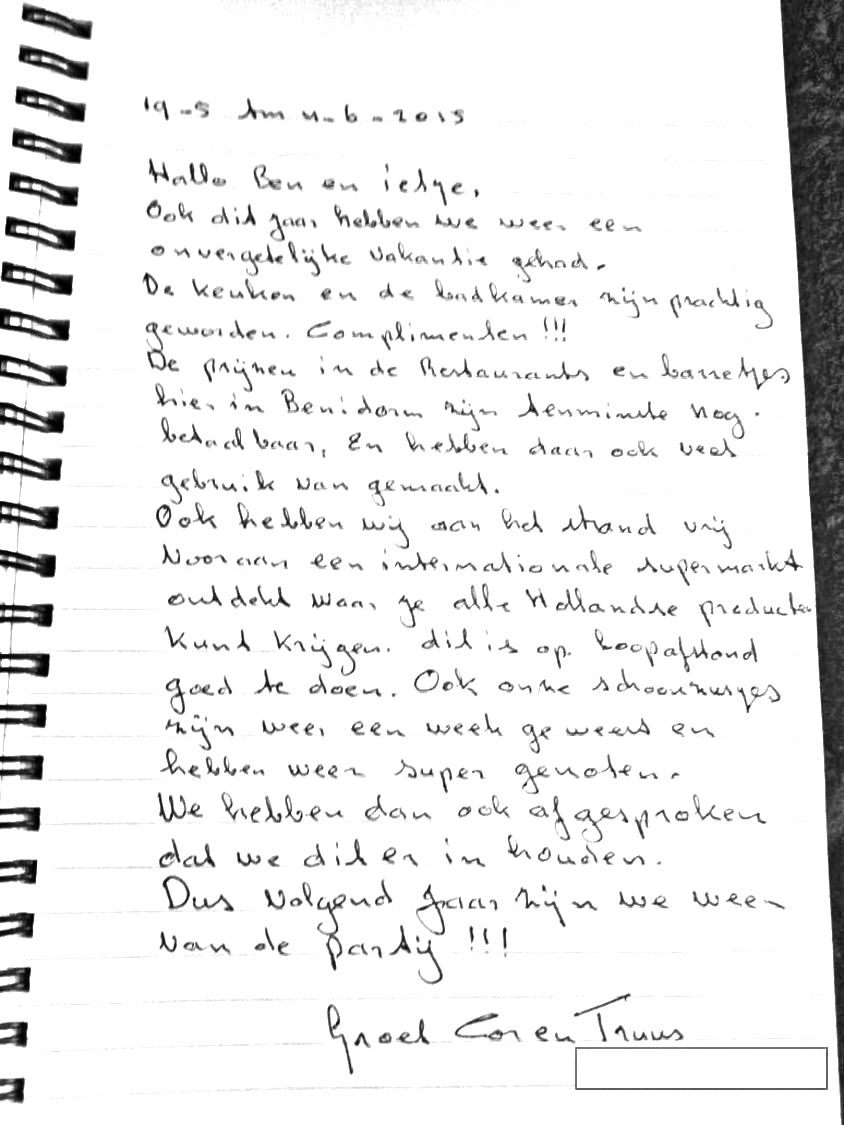 19-5 t/m 4-6-2015
Hallo Ben en ietje,
Ook dit jaar hebben we weer een
onvergetelijke vakantie gehad.
De keuken en de badkamer zijn prachtig
geworden. Complimenten !!!
De prijzen in de Restaurants en barretjes
hier in Benidorm zijn tenminste nog
betaalbaar, En hebben daar ook veel
gebruik van gemaakt.
Ook hebben wij aan het strand vrij
Vooraan een internationale supermarkt
ontdekt waar je alle Hollandse producten
Kunt Krijgen. dit is op loopafstand
goed te doen. Ook onze schoonzusjes
zijn weer een week geweest en
hebben weer super genoten.
We hebben dan ook afgesproken
dat we dit er in houden.
Dus Volgend jaar zijn we weer
van de partij !!!
Groet Cor en Truus